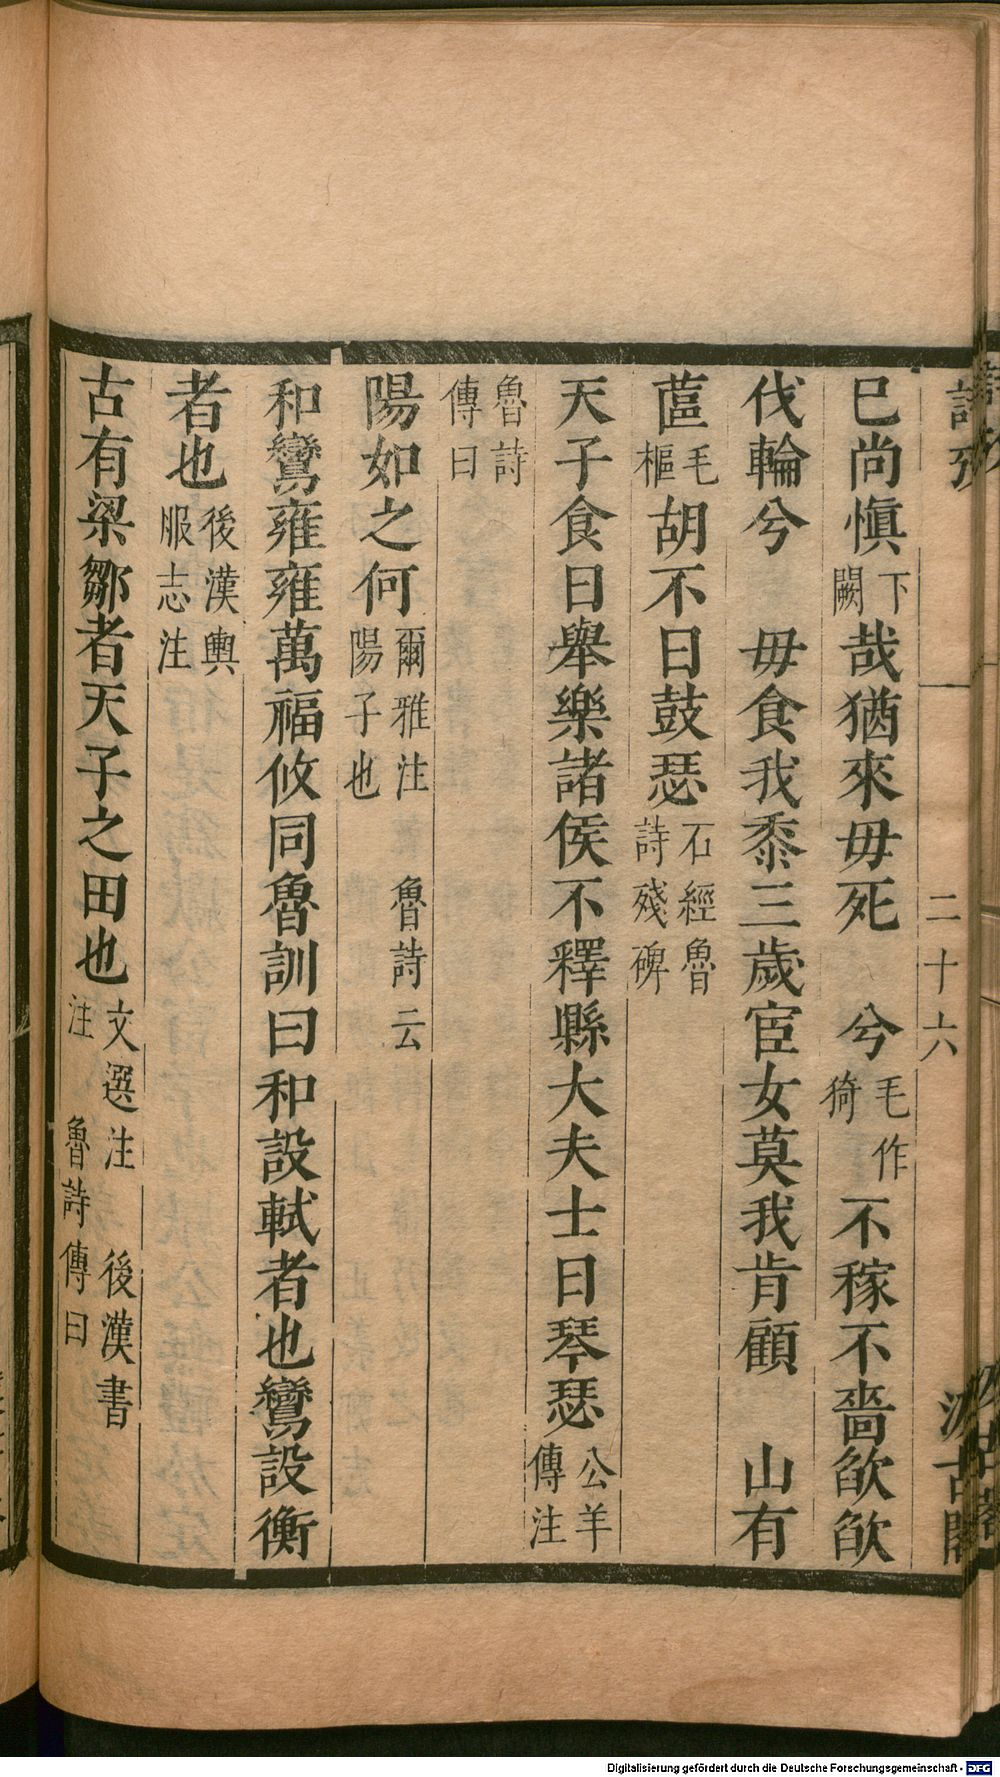 詩攷
二十六
汲古閣
已尚愼下闕哉猶來毋死　兮毛作猗不稼不嗇欿欿
伐輪兮　毋食我黍三歲宦女莫我肯顧　山有
蓲毛樞胡不日鼓瑟石經魯詩殘碑
天子食日舉樂諸侯不釋縣大夫士日琴瑟公羊傳注
魯詩傳曰
陽如之何爾雅注　魯詩云陽子也
和鸞雍雍萬福攸同魯訓曰和設軾者也鸞設衡
者也後漢輿服志注
古有梁鄒者天子之田也文選注　後漢書注　魯詩傳曰
Digitalisierung gefördert durch die Deutsche Forschungsgemeinschaft - DFG